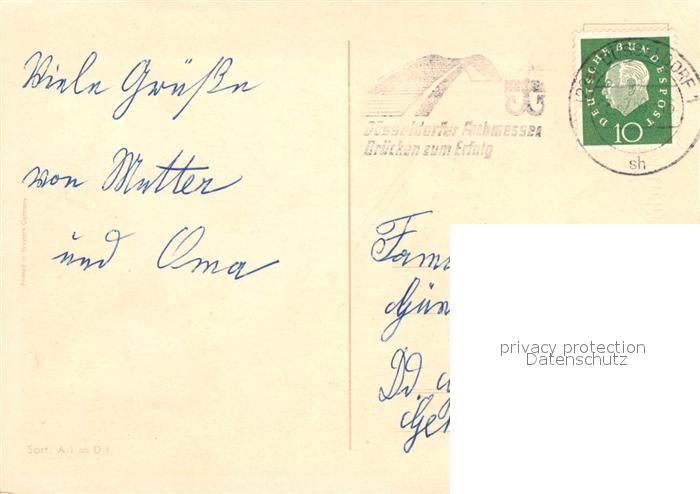 Viele Grüße
von Mutter
und Oma
Printed in Western Germany
Sort. A-1 = D-1
Düsseldorfer Fachmessen
Brücken zum Erfolg
DEUTSCHE BUNDESPOST
10
sh
privacy protection
Datenschutz